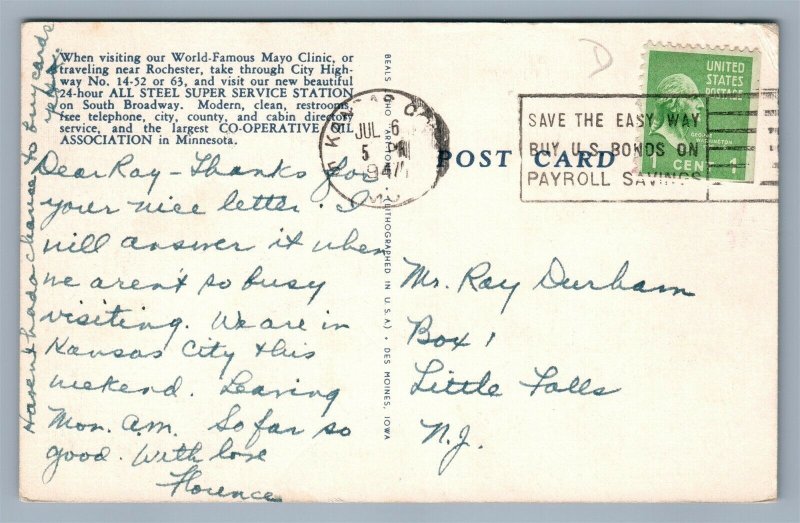 When visiting our World-Famous Mayo Clinic, or
traveling near Rochester, take through City High-
way No. 14-52 or 63, and visit our new beautiful
24-hour ALL STEEL SUPER SERVICE STATION
on South Broadway. Modern, clean, restrooms,
free telephone, city, county, and cabin directory
service, and the largest CO-OPERATIVE OIL
ASSOCIATION in Minnesota.
Dear Ray - Thanks for
your nice letter. I
will answer it when
we aren't so busy
visiting. We are in
Kansas City this
weekend. Leaving
Mon. a.m. So far so
good. With love
Florence
Haven't had a chance to buy cards
BEALS
LITHOGRAPHED IN U.S.A. • DES MOINES, IOWA
POST CARD
KANSAS CITY
JUL 6
5 PM
194
SAVE THE EASY WAY
BUY U.S. BONDS ON
PAYROLL SAVINGS
UNITED
STATES
POSTAGE
GEORGE
WASHINGTON
1 CENT 1
D
Mr. Ray Durham
Box 1
Little Falls
N.J.